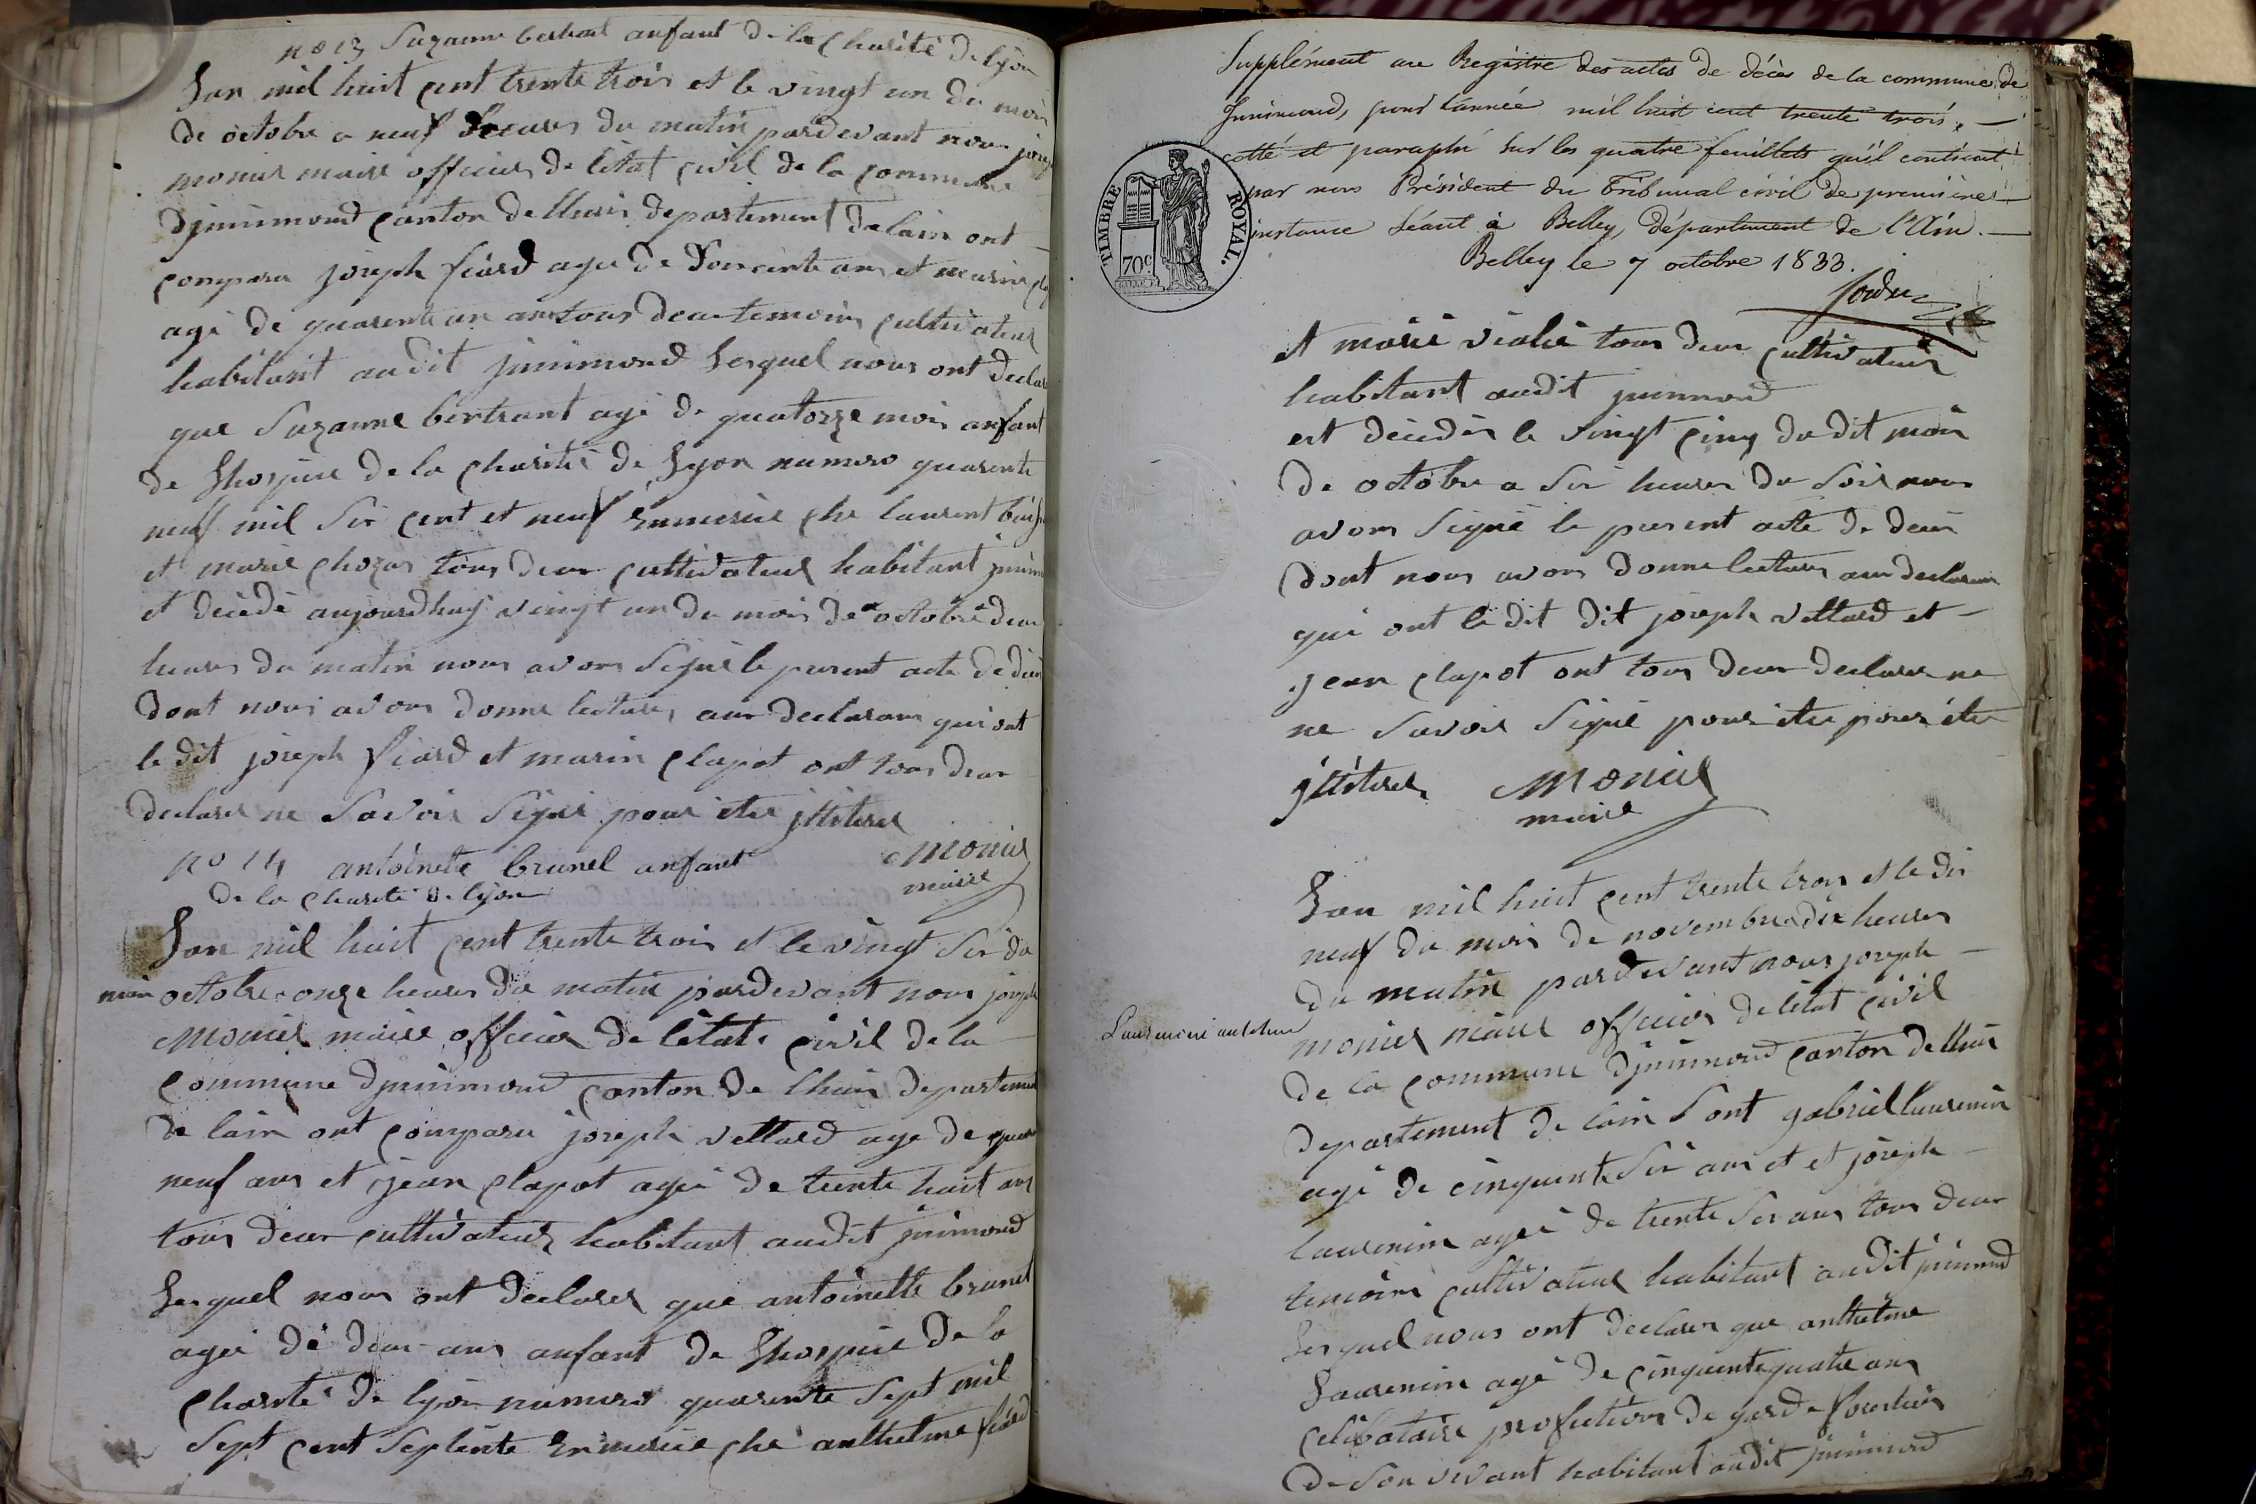 no 13 Suzanne bertrant anfant de la charité de lyon
Lan mil huit cent trente trois et le vingt un du mois
de octobre a neuf heures du matin pardevant nous joseph
monier maire officier de létat civil de la commune
djnnimond canton de lhuis departement de lain ont
comparu joseph ficird agée de soixante ans et marin
agé de quarente un ans tous deux temoins cultivateur
habitant audit jnnimond lesquel nous ont declaré
que Suzanne bertrant agé de quatorze mois anfant
de lhospice de la charité de Lyon numero quarente
neuf mil six cent et neuf ennourice ché laurent
et marie chozas tous deux cultivateur habitant
et décédé aujourdhuy vingt un du mois de octobre deux
heures du matin nous avons signé le present acte de
dont nous avons donné lecture aux declarans qui ont
le dit joseph ficird et marin clapot ont tous deux
declarer ne savoir signé pour etre jlliterer
no 14 antoinette brunel anfant
de la charité de lyon
monier
maire
Lan mil huit cent trente trois et le vingt six du
mois octobre onze heures du matin pardevant nous joseph
monier maire officier de létat civil de la
commune djnnimond canton de lhuis departement
de lain ont comparu joseph vettard age de
neuf ans et jean clapot agée de trente huit ans
tous deux cultivateur habitant audit jnnimond
lesquel nous ont declarer que antoinette brunel
agée de deux ans anfant de lhospice de la
charité de lyon numero quarente sept mil
sept cent septente ennourice ché anthelme ficird
Supplément au Registre des actes de décès de la commune de
Jnnimond, pour l'année mil huit cent trente trois,
cotté et paraphé sur les quatre feuillets qu'il contient
par nous Président du Tribunal civil de première
instance séant à Belley, département de l'Ain.
Belley le 7 octobre 1833.
TIMBRE ROYAL.
70c
et marie vialié tous deux cultivateur
habitant audit jnnimond
est décédés le vingt cinq du dit mois
de octobre a six heures du soir nous
avons signé le present acte de
dont nous avons donné lecture aux declarans
qui ont le dit dit joseph vettard et
jean clapot ont tous deux declarer ne
ne savoir signé pour etre pour étre
jlliterer monier
maire
Lan mil huit cent trente trois et le dix
neuf du mois de novembre a dix heures
du matin pardevant nous joseph
monier maire officier de létat civil
Laurenein anthelme
de la commune djnnimond canton de lhuis
departement de lain sont gabriel laurenin
agé de cinquente six ans et et joseph
laurenin agée de trente six ans tous deux
temoins cultivateur habitant audit jnnimond
lesquel nous ont declarer que anthelme
Laurenin agé de cinquente quatre ans
celibataire profeticion de garde forestier
de son vivant habitant audit jnnimond